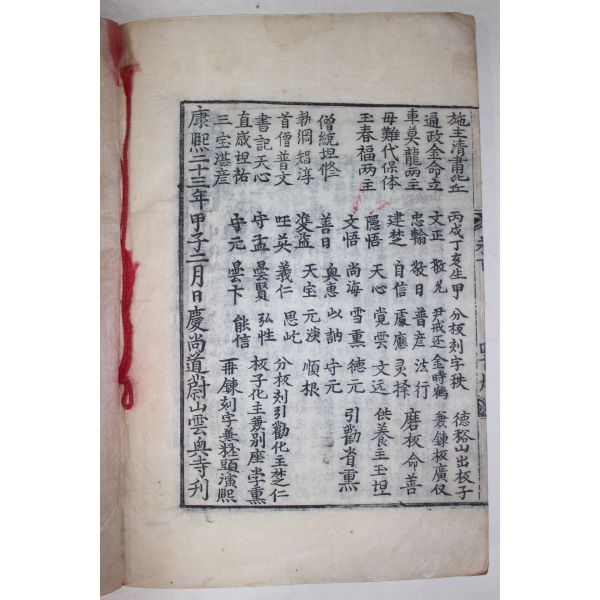 施主清肅比丘 丙戌丁亥生甲 分板刻字秩 德裕山出板子
通政金命立 文正 敬允 尹戒还 金時鶴 兼鍊板廣仅
車莫龍兩主 忠輪 敬日 普彦 法行 磨板命善
母難代保体 建楚 自信 處應 灵择
王春福兩主 隱悟 天心 覚雲 文远 供養主玉坦
文悟 尚海 雪熏 德元 引勸省熏
僧統坦修 善日 奥惠 以訥 守元
執綱 淳 益 天宝 元淡 順根
首僧普文 英 義仁 思 分板刻引勸化主楚仁
書記天心 守孟 曇賢 弘性 板子化主兼別座学熏
直歲坦祐 守元 曇卞 能信 再鍊刻字兼 頭演熙
三宝湛彦
康熙二十三年甲子二月日慶尚道蔚山雲興寺刊